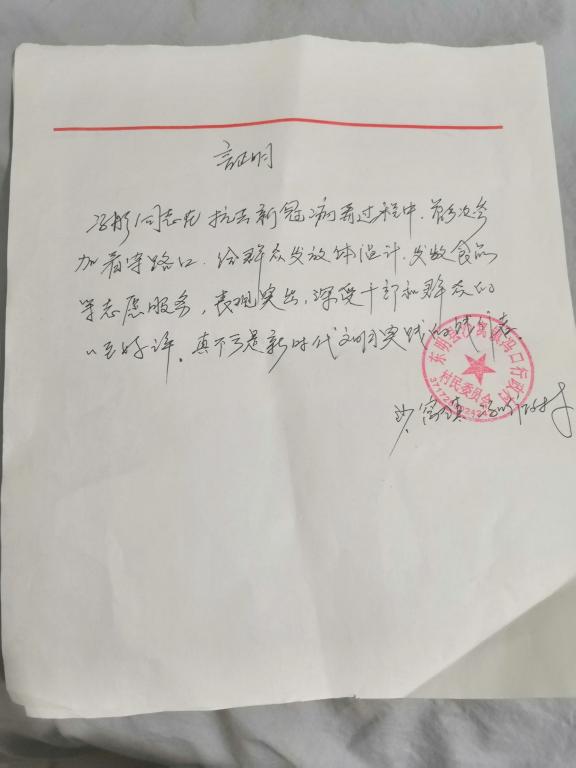 证明
冯彤同志在抗击新冠病毒过程中，曾多次参
加看守路口、给群众发放体温计、发放食品
等志愿服务，表现突出，深受干部和群众的
一至好评。真不亏是新时代文明实践的
东明县 镇冯口行政村
村民委员会
镇冯口行政村